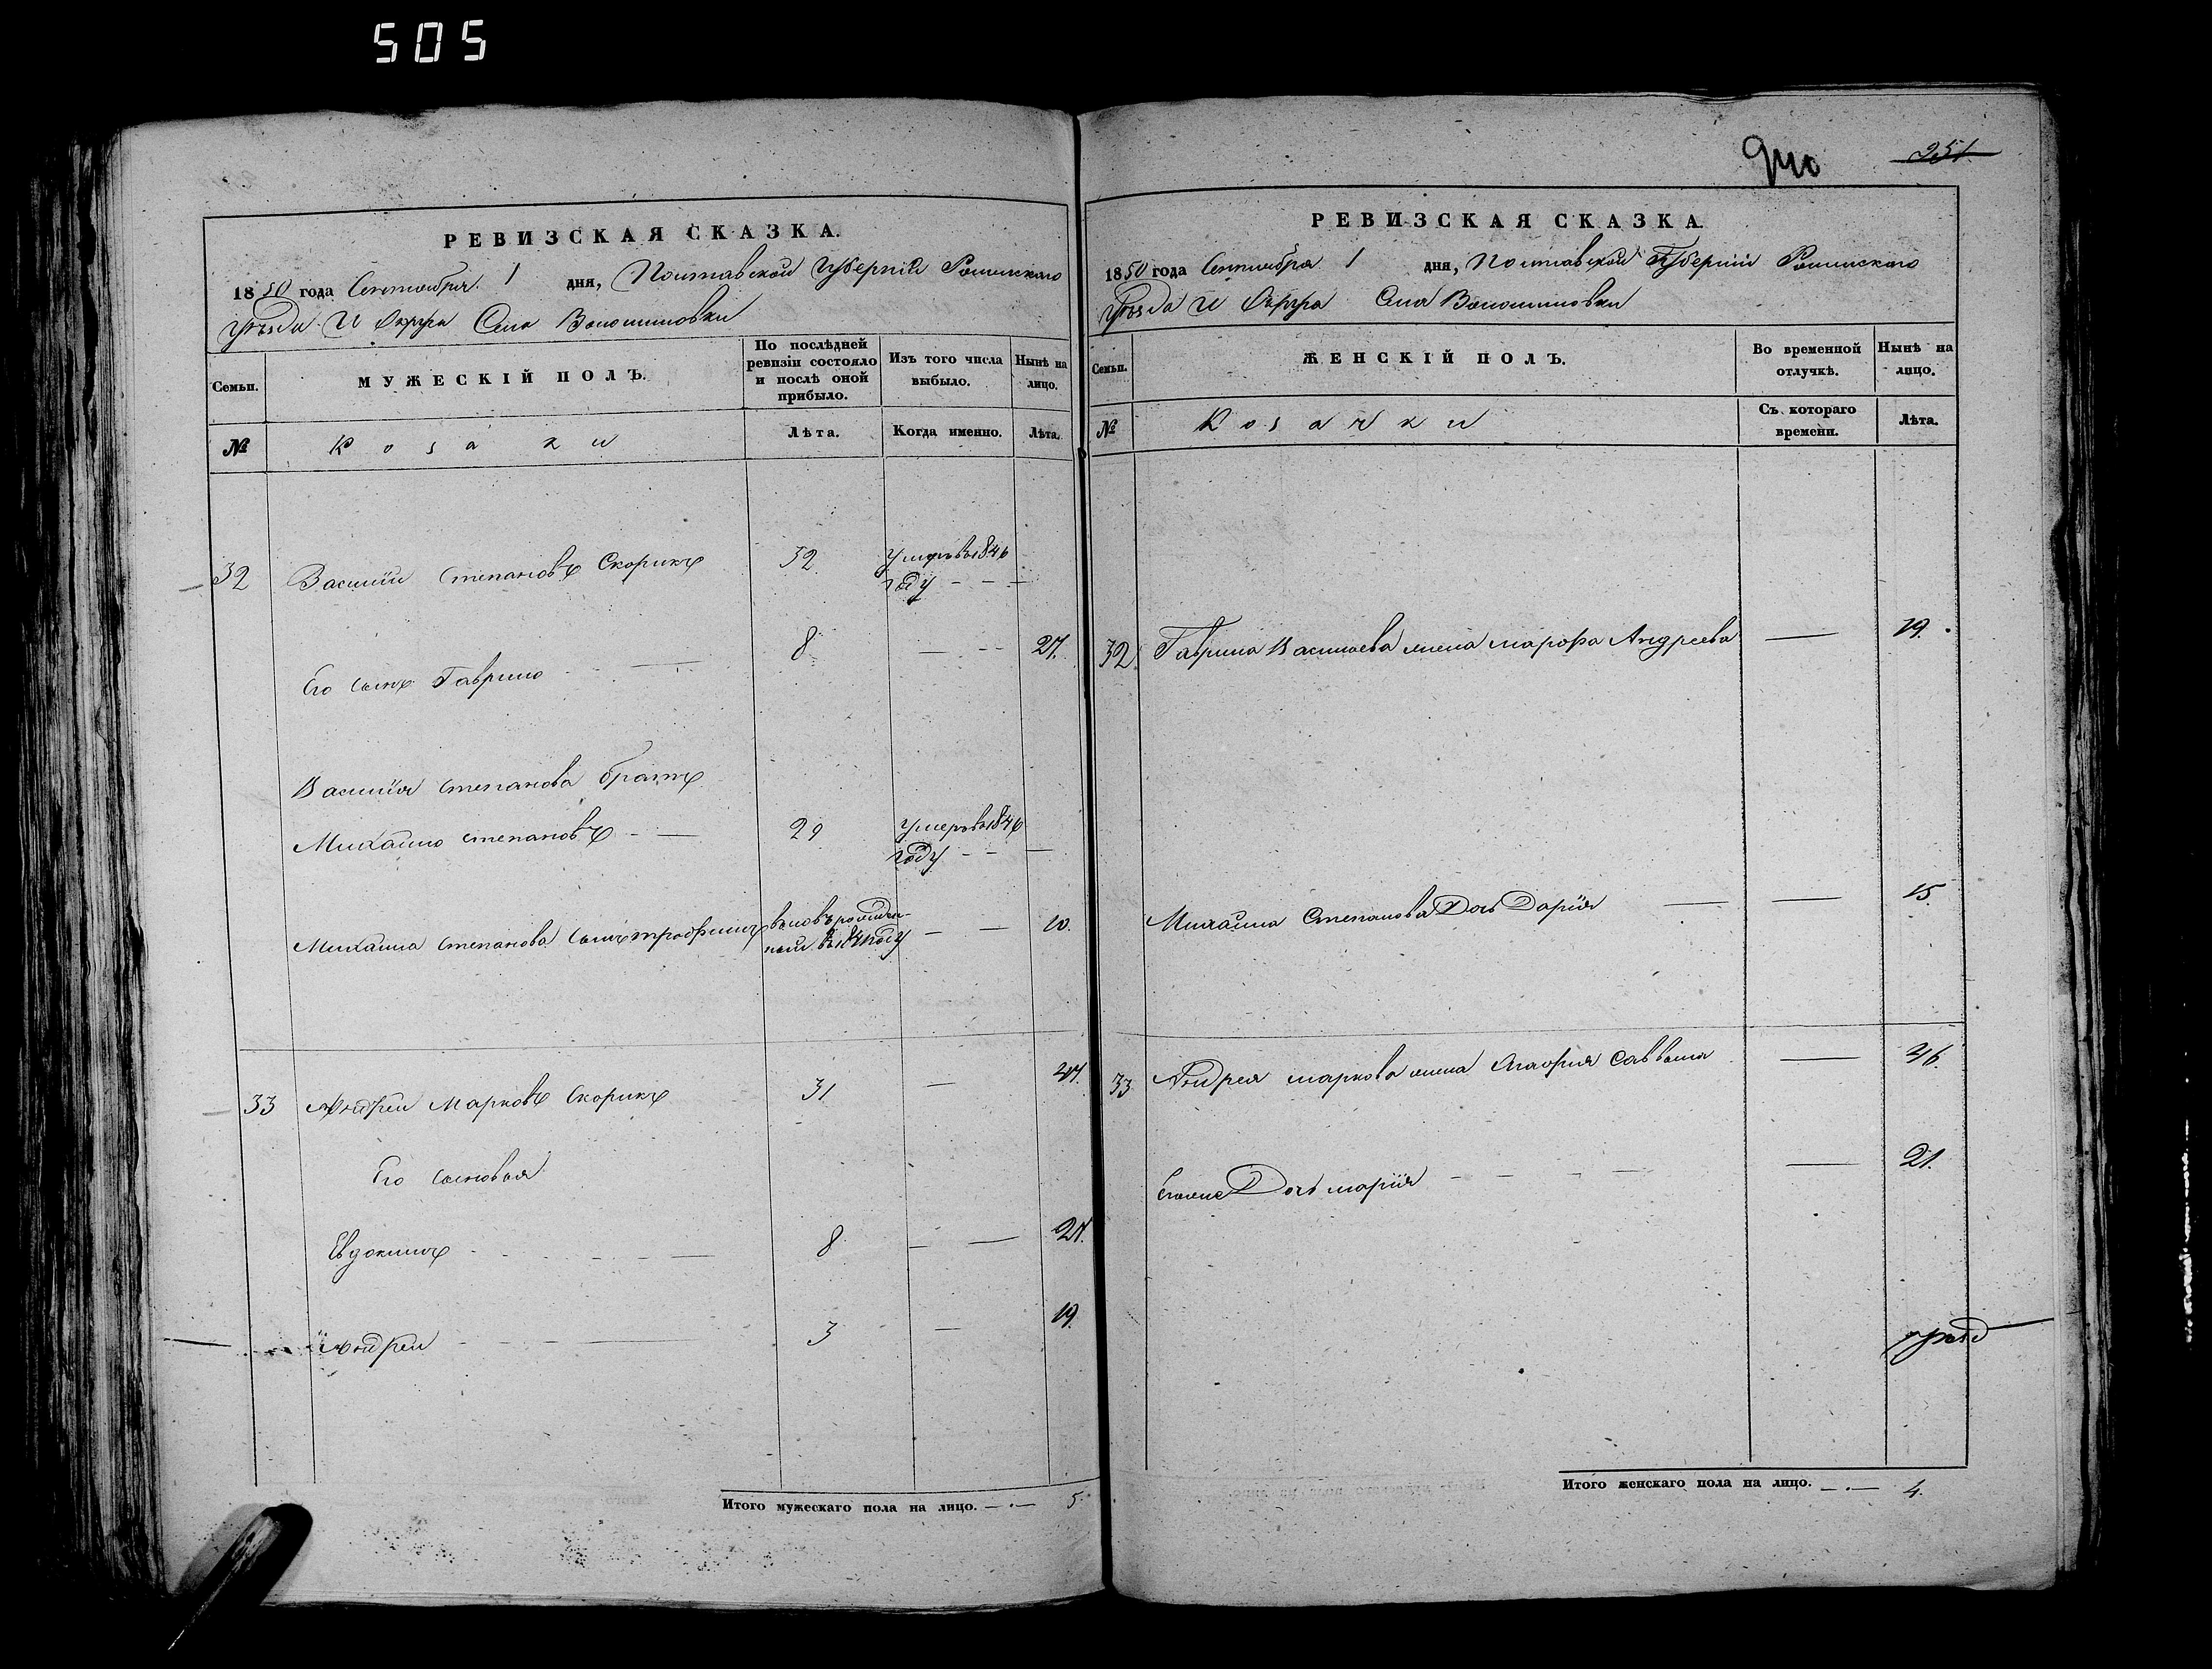 505
940
251
РЕВИЗСКАЯ СКАЗКА.
1850 года Сентября 1 дня, Полтавской Губерніи Роменскаго
уѣзда И Округа Села Волошиновки
Семьи.
МУЖЕСКІЙ ПОЛЪ.
По послѣдней ревизіи состояло и послѣ оной прибыло.
Изъ того числа выбыло.
Нынѣ на лицо.
№
Козаки
Лѣта.
Когда именно.
Лѣта.
32 Василій Степановъ Скорикъ 32 Умеръ въ 1846
году — — —
Его сынъ Гаврило — 8 — — 24.
Василія Степанова братъ
Михайло Степановъ — — 29 Умеръ въ 1846
году — — —
Михайла Степанова сынъ Трофимъ вновь рожден- — — 10.
ной въ 1841 году
33 Андрей Марковъ Скорикъ 31 — 47.
Его сыновья
Евдокимъ — — 8 — — 24.
Андрей — — 3 — 19.
Итого мужескаго пола на лицо. — · — 5.
РЕВИЗСКАЯ СКАЗКА.
1850 года Сентября 1 дня, Полтавской Губерніи Роменскаго
уѣзда И Округа Села Волошиновки
Семьи.
ЖЕНСКІЙ ПОЛЪ.
Во временной отлучкѣ.
Нынѣ на лицо.
№
Козачки
Съ котораго времени.
Лѣта.
32. Гаврила Васильева жена Марфа Андреева — 19.
Михайла Степанова Дочь Дарія — — 15.
33. Андрея Маркова жена Агафія Саввина — 46.
Дочь Марія — — — — — 21.
Итого женскаго пола на лицо. — · — 4.